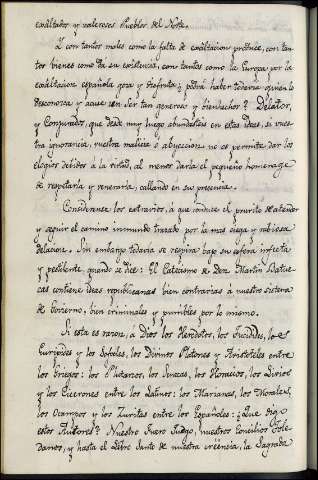 exâltados y valerosos Pueblos del Norte.
Y con tantos males como la falta de exâltacion produce, con tan-
tos bienes como da su exîstencia, con tantos como la Europa por la
exâltacion española goza y disfruta ¿podrá haber todavia quien lo
desconozca y acuse un ser tan generoso y bienhechor? Delator,
y Conjurados, que desde muy luego abundasteis en estas ideas, si vues-
tra ignorancia, vuestra malicia o abyeccion no os permite dar los
elogios debidos à la virtud, al menos darla el pequeño homenage
de respetarla y venerarla, callando en su presencia.
Considerense los extravios, à que conduce el prurito de atender
y seguir el camino inmundo trazado por la mas ciega y rabiosa
delacion. Sin embargo todavia se respira bajo su esfera infecta
y pestilente, quando se dice: El Catecismo de Don Martin Batue-
cas contiene ideas republicanas bien contrarias à nuestro sistema
de Govierno, bien criminales y punibles por lo mismo.
Si esta es razon, á Dios los Herodotos, los Tucidides, los
Euripides y los Sofocles, los Divinos Platones y Aristoteles entre
los Griegos: los Plutarcos, los Senecas, los Horacios, los Livios
y los Cicerones entre los Latinos: los Marianas, los Morales,
los Ocampos y los Zuritas entre los Españoles: ¿Que digo
estos Autores? Nuestro Fuero Juzgo, nuestros Concilios Tole-
danos, y hasta el Libro Santo de nuestra creencia, la Sagrada